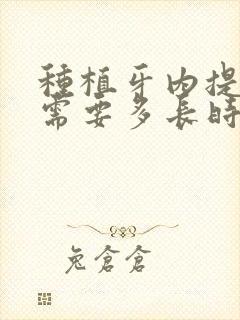 種植牙内提
需要多長時
兔倉倉